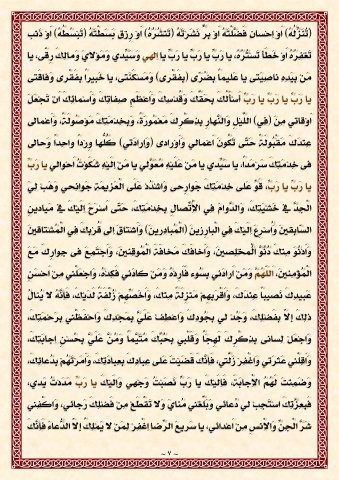 (تُنَزِّلُهُ) أَوْ إِحْسَانٍ فَضَّلْتَهُ أَوْ بِرٍّ نَشَرْتَهُ (تَنْشُرُهُ) أَوْ رِزْقٍ بَسَطْتَهُ (تَبْسُطُهُ) أَوْ ذَنْبٍ
تَغْفِرُهُ أَوْ خَطَأٍ تَسْتُرُهُ، يَا رَبِّ يَا رَبِّ يَا رَبِّ يَا إِلهِي وَسَيِّدِي وَمَوْلَايَ وَمَالِكَ رِقِّي، يَا
مَنْ بِيَدِهِ نَاصِيَتِي يَا عَلِيماً بِضُرِّي (بِفَقْرِي) وَمَسْكَنَتِي، يَا خَبِيراً بِفَقْرِي وَفَاقَتِي
يَا رَبِّ يَا رَبِّ يَا رَبِّ أَسْأَلُكَ بِحَقِّكَ وَقُدْسِكَ وَأَعْظَمِ صِفَاتِكَ وَأَسْمَائِكَ أَنْ تَجْعَلَ
أَوْقَاتِي مِنَ (فِي) اللَّيْلِ وَالنَّهَارِ بِذِكْرِكَ مَعْمُورَةً، وَبِخِدْمَتِكَ مَوْصُولَةً، وَأَعْمَالِي
عِنْدَكَ مَقْبُولَةً حَتَّى تَكُونَ أَعْمَالِي وَأَوْرَادِي (وَإِرَادَتِي) كُلُّهَا وِرْداً وَاحِداً وَحَالِي
فِي خِدْمَتِكَ سَرْمَداً، يَا سَيِّدِي يَا مَنْ عَلَيْهِ مُعَوَّلِي يَا مَنْ إِلَيْهِ شَكَوْتُ أَحْوَالِي يَا رَبِّ
يَا رَبِّ يَا رَبِّ، قَوِّ عَلَى خِدْمَتِكَ جَوَارِحِي وَاشْدُدْ عَلَى الْعَزِيمَةِ جَوَانِحِي وَهَبْ لِيَ
الْجِدَّ فِي خَشْيَتِكَ، وَالدَّوَامَ فِي الْاِتِّصَالِ بِخِدْمَتِكَ، حَتَّى أَسْرَحَ إِلَيْكَ فِي مَيَادِينِ
السَّابِقِينَ وَأُسْرِعَ إِلَيْكَ فِي الْبَارِزِينَ (الْمُبَادِرِينَ) وَأَشْتَاقَ إِلَى قُرْبِكَ فِي الْمُشْتَاقِينَ
وَأَدْنُوَ مِنْكَ دُنُوَّ الْمُخْلِصِينَ، وَأَخَافَكَ مَخَافَةَ الْمُوقِنِينَ، وَأَجْتَمِعَ فِي جِوَارِكَ مَعَ
الْمُؤْمِنِينَ، اللَّهُمَّ وَمَنْ أَرَادَنِي بِسُوءٍ فَأَرِدْهُ وَمَنْ كَادَنِي فَكِدْهُ، وَاجْعَلْنِي مِنْ أَحْسَنِ
عَبِيدِكَ نَصِيباً عِنْدَكَ، وَأَقْرَبِهِمْ مَنْزِلَةً مِنْكَ، وَأَخَصِّهِمْ زُلْفَةً لَدَيْكَ، فَإِنَّهُ لَا يُنَالُ
ذلِكَ إِلاَّ بِفَضْلِكَ، وَجُدْ لِي بِجُودِكَ وَاعْطِفْ عَلَيَّ بِمَجْدِكَ وَاحْفَظْنِي بِرَحْمَتِكَ،
وَاجْعَلْ لِسَانِي بِذِكْرِكَ لَهِجاً وَقَلْبِي بِحُبِّكَ مُتَيَّماً وَمُنَّ عَلَيَّ بِحُسْنِ إِجَابَتِكَ،
وَأَقِلْنِي عَثْرَتِي وَاغْفِرْ زَلَّتِي، فَإِنَّكَ قَضَيْتَ عَلَى عِبَادِكَ بِعِبَادَتِكَ، وَأَمَرْتَهُمْ بِدُعَائِكَ،
وَضَمِنْتَ لَهُمُ الْإِجَابَةَ، فَإِلَيْكَ يَا رَبِّ نَصَبْتُ وَجْهِي وَإِلَيْكَ يَا رَبِّ مَدَدْتُ يَدِي،
فَبِعِزَّتِكَ اسْتَجِبْ لِي دُعَائِي وَبَلِّغْنِي مُنَايَ وَلَا تَقْطَعْ مِنْ فَضْلِكَ رَجَائِي، وَاكْفِنِي
شَرَّ الْجِنِّ وَالْإِنْسِ مِنْ أَعْدَائِي، يَا سَرِيعَ الرِّضَا اِغْفِرْ لِمَنْ لَا يَمْلِكُ إِلاَّ الدُّعَاءَ فَإِنَّكَ
~ ٧ ~